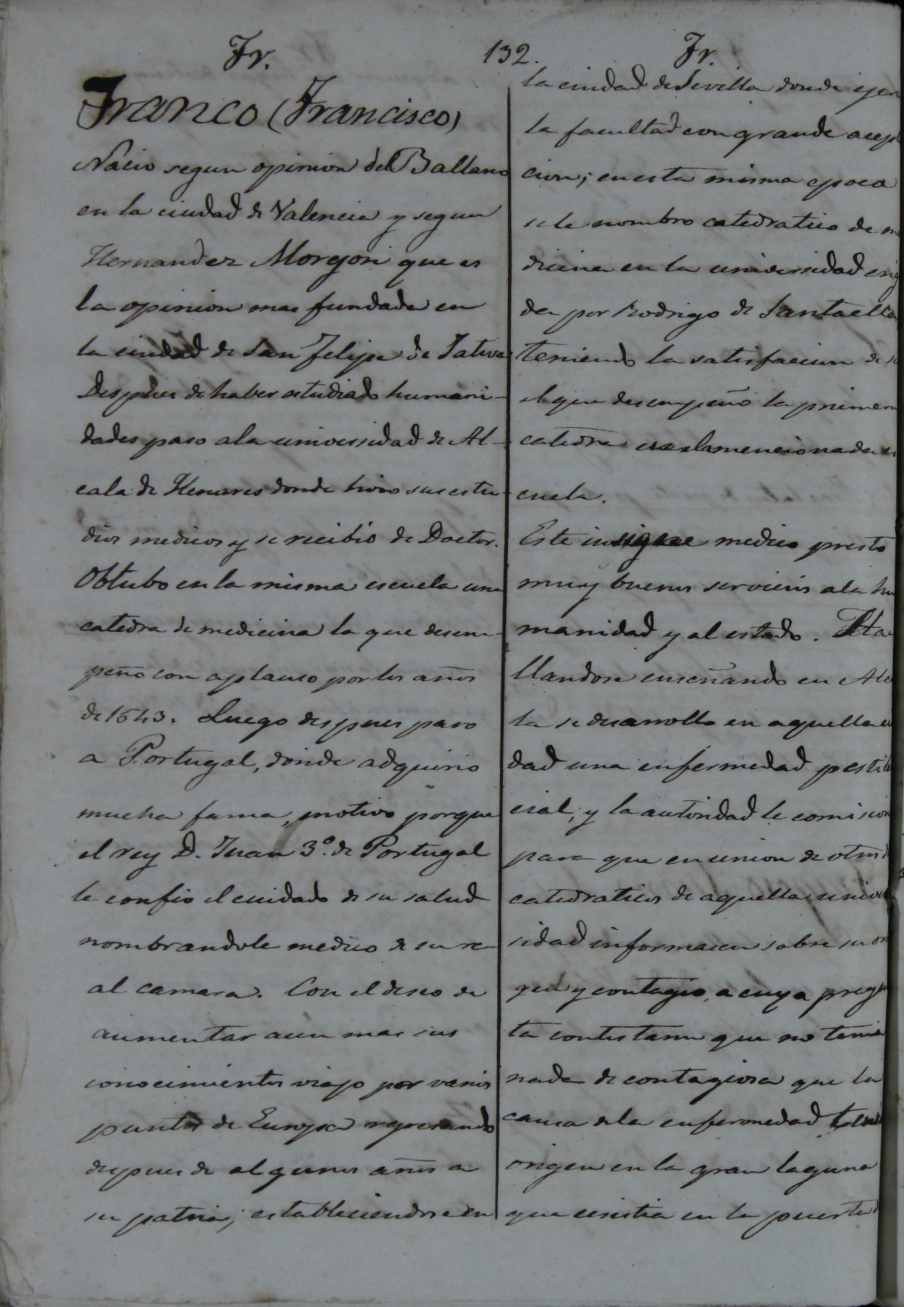 Fr.
132.
Fr.
Franco (Francisco)
Nacio segun opinion del Ballano
en la ciudad de Valencia y segun
Hernandez Morejon que es
la opinion mas fundada en
la ciudad de San Felipe de Jativa
Despues de haber estudiado humani-
dades paso a la universidad de Al-
cala de Henares donde hizo sus estu-
dios medicos y se recibio de Doctor.
Obtubo en la misma escuela una
catedra de medicina la que desem-
peño con aplauso por los años
de 1543. Luego despues paso
a Portugal, donde adquirio
mucha fama, motivo porque
el rey D. Juan 3º. de Portugal
le confio el cuidado de su salud
nombrandole medico de su re-
al camara. Con el deseo de
aumentar aun mas sus
conocimientos viajo por varios
puntos de Europa regresando
despues de algunos años a
su patria; estableciendose en
la ciudad de Sevilla donde ejer
la facultad con grande acep
cion; en esta misma epoca
se le nombro catedratico de me
dicina en la universidad erig
da por Rodrigo de Santaella
teniendo la satisfacion de s
el que desempeño la primera
catedra en la mencionada es
cuela.
Este insigne medico presto
muy buenos servicios a la hu
manidad y al estado. Ha
llandose enseñando en Alca
la se desarrollo en aquella ciu
dad una enfermedad pestilen
cial, y la autoridad le comision
para que en union de otros
catedraticos de aquella univer
sidad informasen sobre su ori
gen y contagio, a cuya pregun
ta contestaron que no tenia
nada de contagiosa que la
causa de la enfermedad tenia
origen en la gran laguna
que existia en la puerta